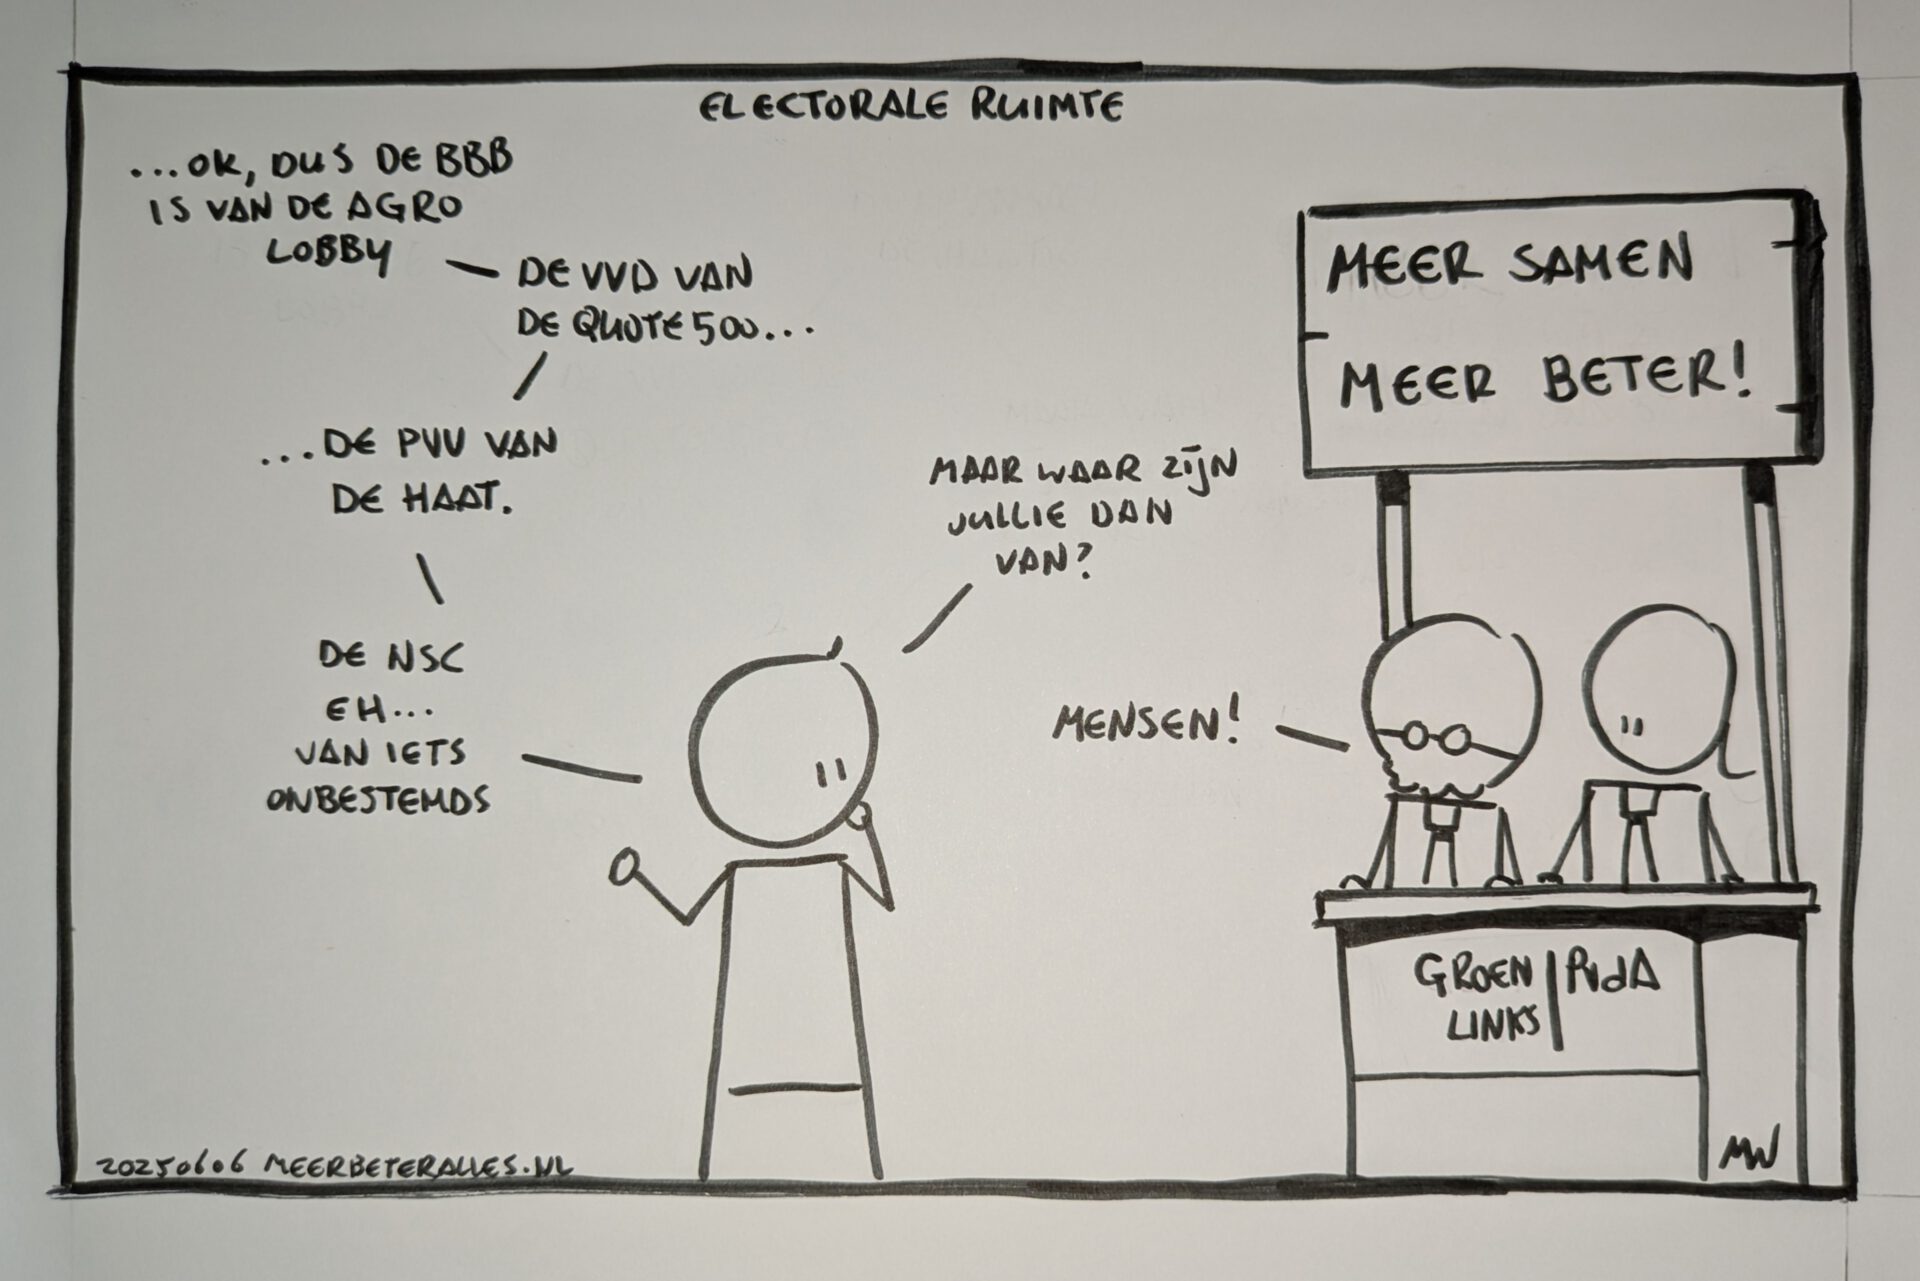 ELECTORALE RUIMTE
...OK, DUS DE BBB
IS VAN DE AGRO
LOBBY
DE VVD VAN
DE QUOTE 500...
...DE PVV VAN
DE HAAT.
DE NSC
EH...
VAN IETS
ONBESTEMDS
MAAR WAAR ZIJN
JULLIE DAN
VAN?
MENSEN!
MEER SAMEN
MEER BETER!
GROEN | PvdA
LINKS
MW
20250606 MEERBETERALLES.NL